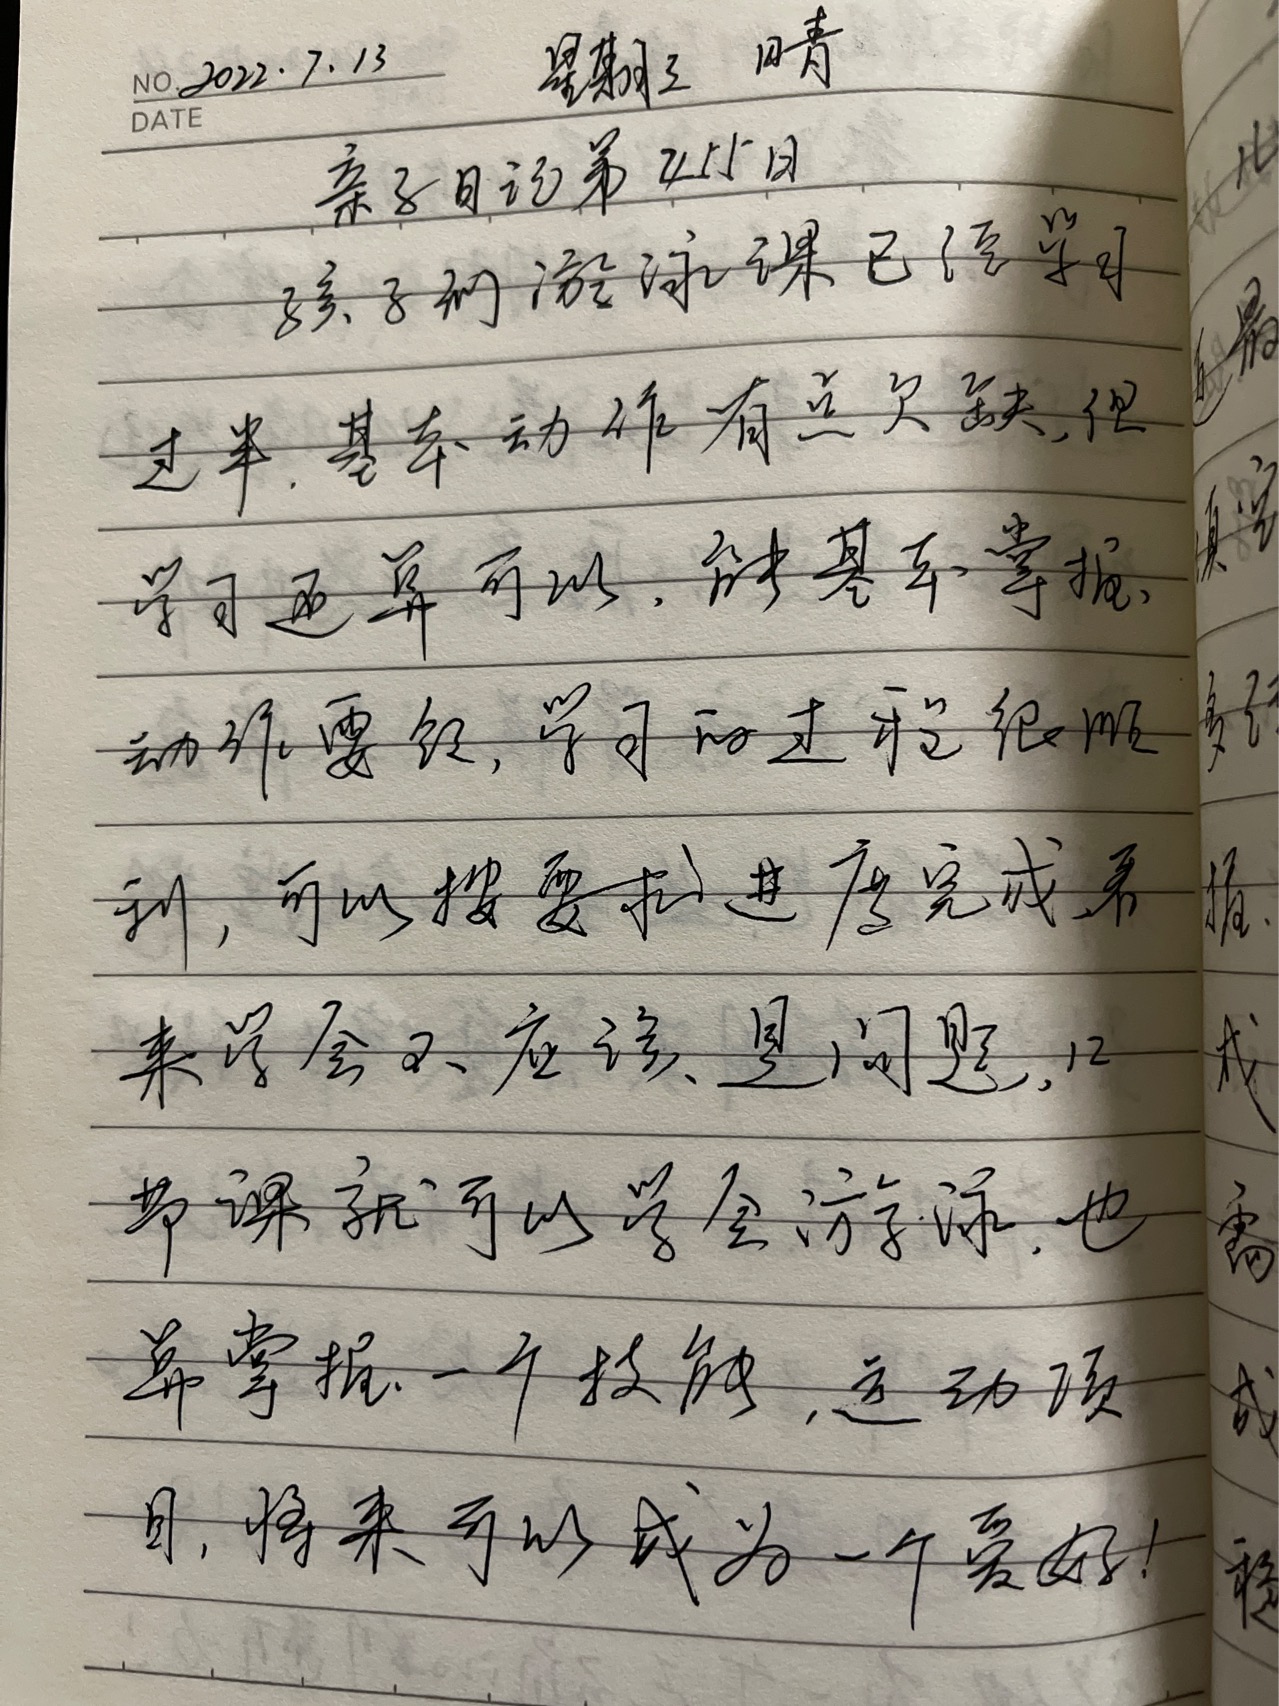 NO. 2022.7.13 星期三 晴
DATE
亲子日记第255日
孩子们游泳课已经学习
过半.基本动作有点欠缺,但
学习还算可以,能基本掌握
动作要领,学习的过程很顺
利,可以按要求进度完成,看
来学会不应该是问题,12
节课就可以学会游泳,也
算掌握一个技能,运动项
目,将来可以成为一个爱好!